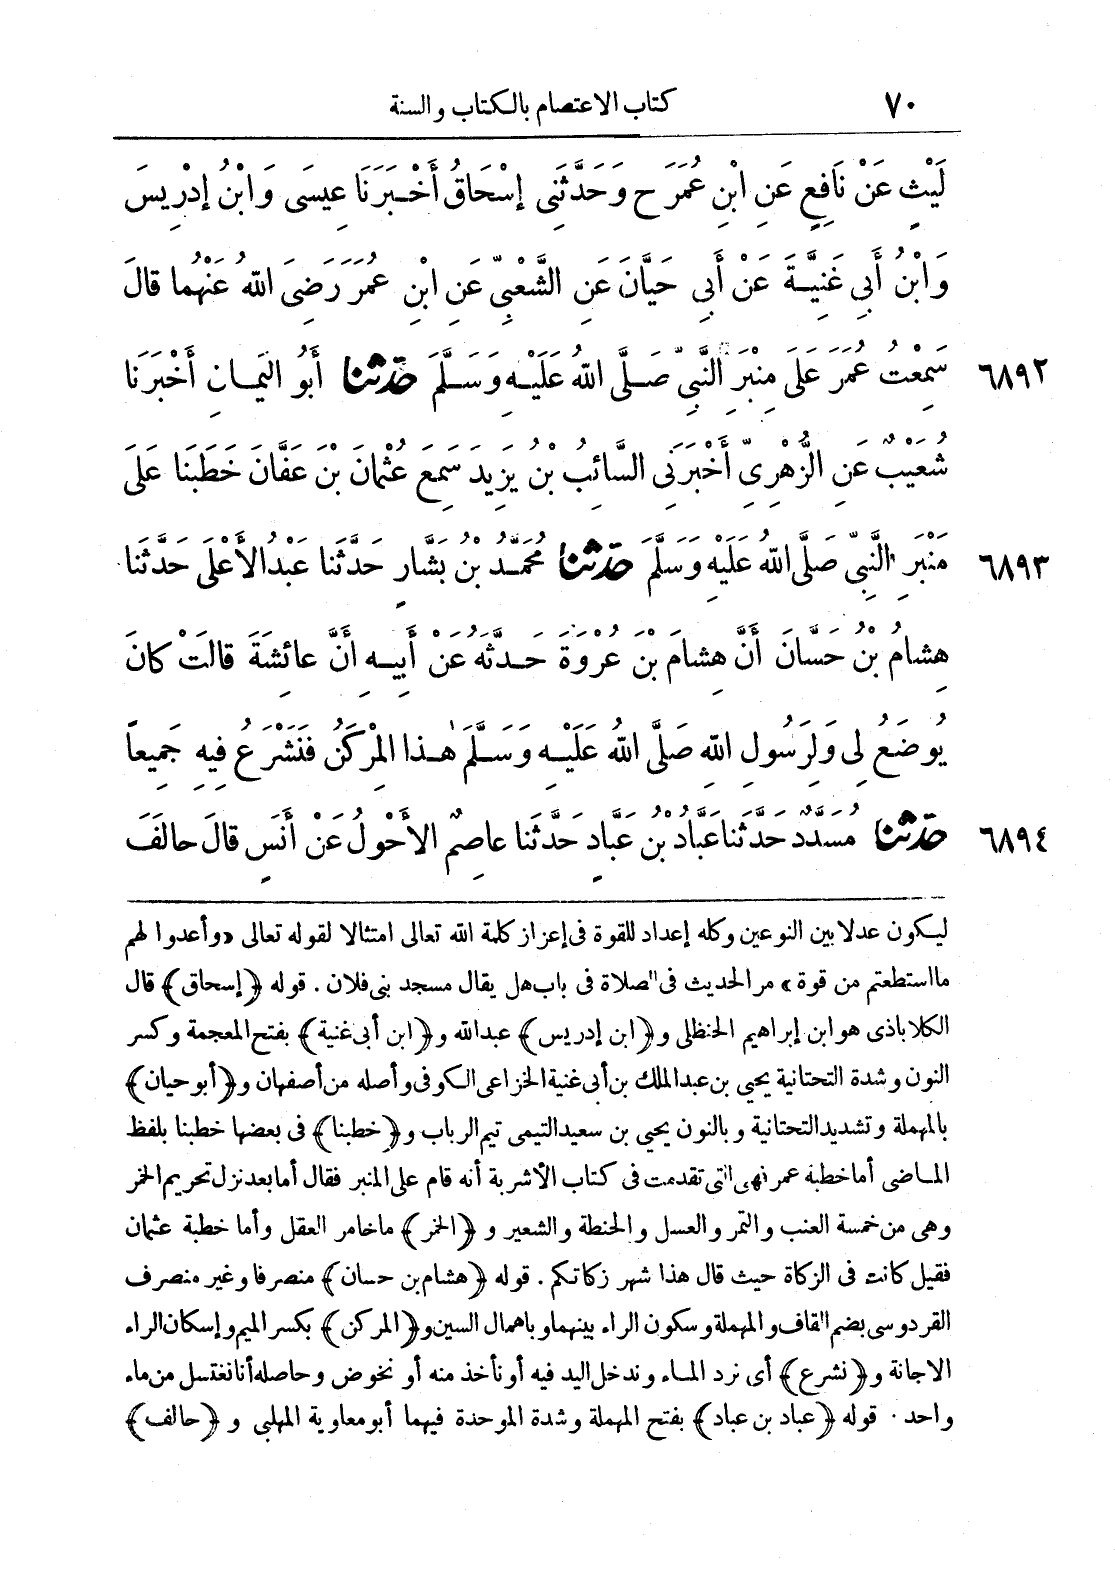 ٧٠ كتاب الاعتصام بالكتاب والسنة
لَيْثٍ عَنْ نَافِعٍ عَنِ ابْنِ عُمَرَ ح وَحَدَّثَنِى إِسْحَاقُ أَخْبَرَنَا عِيسَى وَابْنُ إِدْرِيسَ
وَابْنُ أَبِى غَنِيَّةَ عَنْ أَبِى حَيَّانَ عَنِ الشَّعْبِىِّ عَنِ ابْنِ عُمَرَ رَضِىَ اللهُ عَنْهُما قالَ
٦٨٩٢ سَمِعْتُ عُمَرَ عَلَى مِنْبَرِ النَّبِىِّ صَلَّى اللهُ عَلَيْهِ وَسَلَّمَ حَدَّثَنا أَبُو اليَمانِ أَخْبَرَنَا
شُعَيْبٌ عَنِ الزُّهْرِىِّ أَخْبَرَنِى السَّائِبُ بْنُ يَزِيدَ سَمِعَ عُثْمَانَ بْنَ عَفَّانَ خَطَبَنَا عَلَى
٦٨٩٣ مِنْبَرِ النَّبِىِّ صَلَّى اللهُ عَلَيْهِ وَسَلَّمَ حَدَّثَنا مُحَمَّدُ بْنُ بَشَّارٍ حَدَّثَنا عَبْدُ الأَعْلَى حَدَّثَنا
هِشامُ بْنُ حَسَّانَ أَنَّ هِشَامَ بْنَ عُرْوَةَ حَدَّثَهُ عَنْ أَبِيهِ أَنَّ عائِشَةَ قالَتْ كانَ
يُوضَعُ لِى وَلِرَسُولِ اللهِ صَلَّى اللهُ عَلَيْهِ وَسَلَّمَ هٰذا المِرْكَنُ فَنَشْرَعُ فِيهِ جَمِيعاً
٦٨٩٤ حَدَّثَنا مُسَدَّدٌ حَدَّثَنا عَبَّادُ بْنُ عَبَّادٍ حَدَّثَنا عاصِمٌ الأَحْوَلُ عَنْ أَنَسٍ قالَ حالَفَ
ليكون عدلا بين النوعين وكله إعداد للقوة فى إعزاز كلمة الله تعالى امتثالا لقوله تعالى «وأعدوا لهم
ما استطعتم من قوة» مر الحديث فى الصلاة فى باب هل يقال مسجد بنى فلان . قوله ﴿إسحاق﴾ قال
الكلاباذى هو ابن إبراهيم الحنظلى و﴿ابن إدريس﴾ عبدالله و﴿ابن أبى غنية﴾ بفتح المعجمة وكسر
النون وشدة التحتانية يحيى بن عبد الملك بن أبى غنية الخزاعى الكوفى وأصله من أصفهان و﴿أبو حيان﴾
بالمهملة وتشديد التحتانية وبالنون يحيى بن سعيد التيمى تيم الرباب و﴿خطبنا﴾ فى بعضها خطبنا بلفظ
الماضى أما خطبة عمر فهى التى تقدمت فى كتاب الأشربة أنه قام على المنبر فقال أما بعد نزل تحريم الخمر
وهى من خمسة العنب والتمر والعسل والحنطة والشعير و ﴿الخمر﴾ ما خامر العقل وأما خطبة عثمان
فقيل كانت فى الزكاة حيث قال هذا شهر زكاتكم . قوله ﴿هشام بن حسان﴾ منصرفا وغير منصرف
القردوسى بضم القاف والمهملة وسكون الراء بينهما وباهمال السين و﴿المركن﴾ بكسر الميم وإسكان الراء
الاجانة و﴿نشرع﴾ أى نرد الماء وندخل اليد فيه أو نأخذ منه أو نخوض وحاصله أنا نغتسل من ماء
واحد . قوله ﴿عباد بن عباد﴾ بفتح المهملة وشدة الموحدة فيهما أبو معاوية المهلبى و ﴿حالف﴾